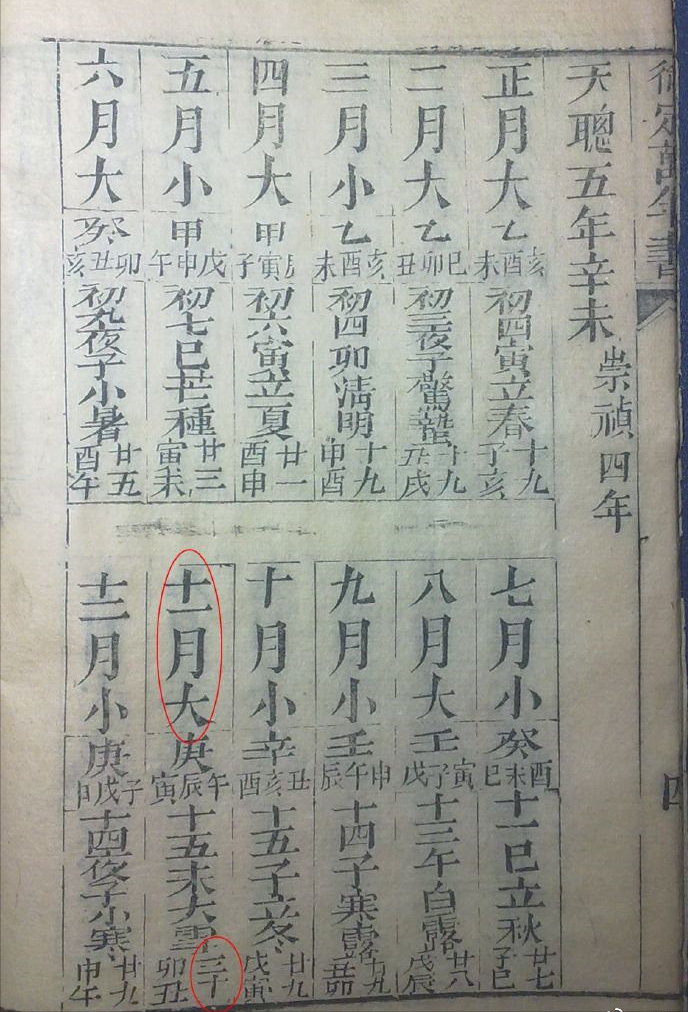 御定萬年書
四
天聰五年辛未 崇禎四年
正月大 乙 亥酉未 初四寅立春 十九子亥
二月大 乙 巳卯丑 初三夜子驚蟄 十九丑戌
三月小 乙 亥酉未 初四卯清明 十九申酉
四月大 甲 辰寅子 初六寅立夏 廿一酉申
五月小 甲 戌申午 初七巳芒種 廿三寅未
六月大 癸 卯丑亥 初九夜子小暑 廿五酉午
七月小 癸 酉未巳 十一巳立秋 廿七子巳
八月大 壬 寅子戌 十三午白露 廿八戌辰
九月小 壬 申午辰 十四子寒露 廿九丑卯
十月小 辛 丑亥酉 十五子立冬 廿九戌寅
十一月大 庚 午辰寅 十五未大雪 三十卯丑
十二月小 庚 子戌申 十四夜子小寒 廿九申午